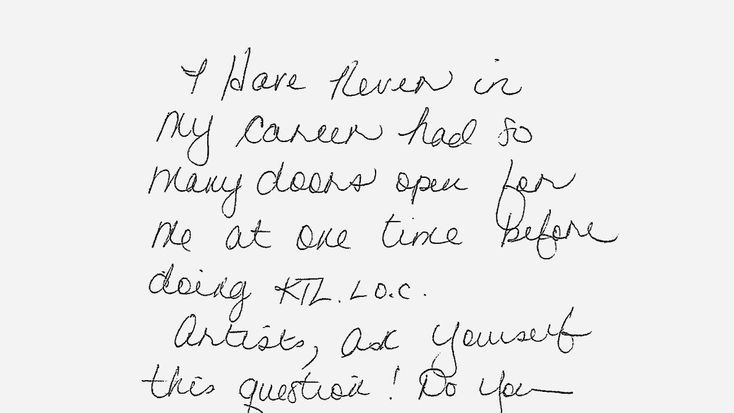 I Have Never in
My career had so
many doors open for
me at one time before
doing KTL.LO.C.
Artists, ask yourself
this question! Do you